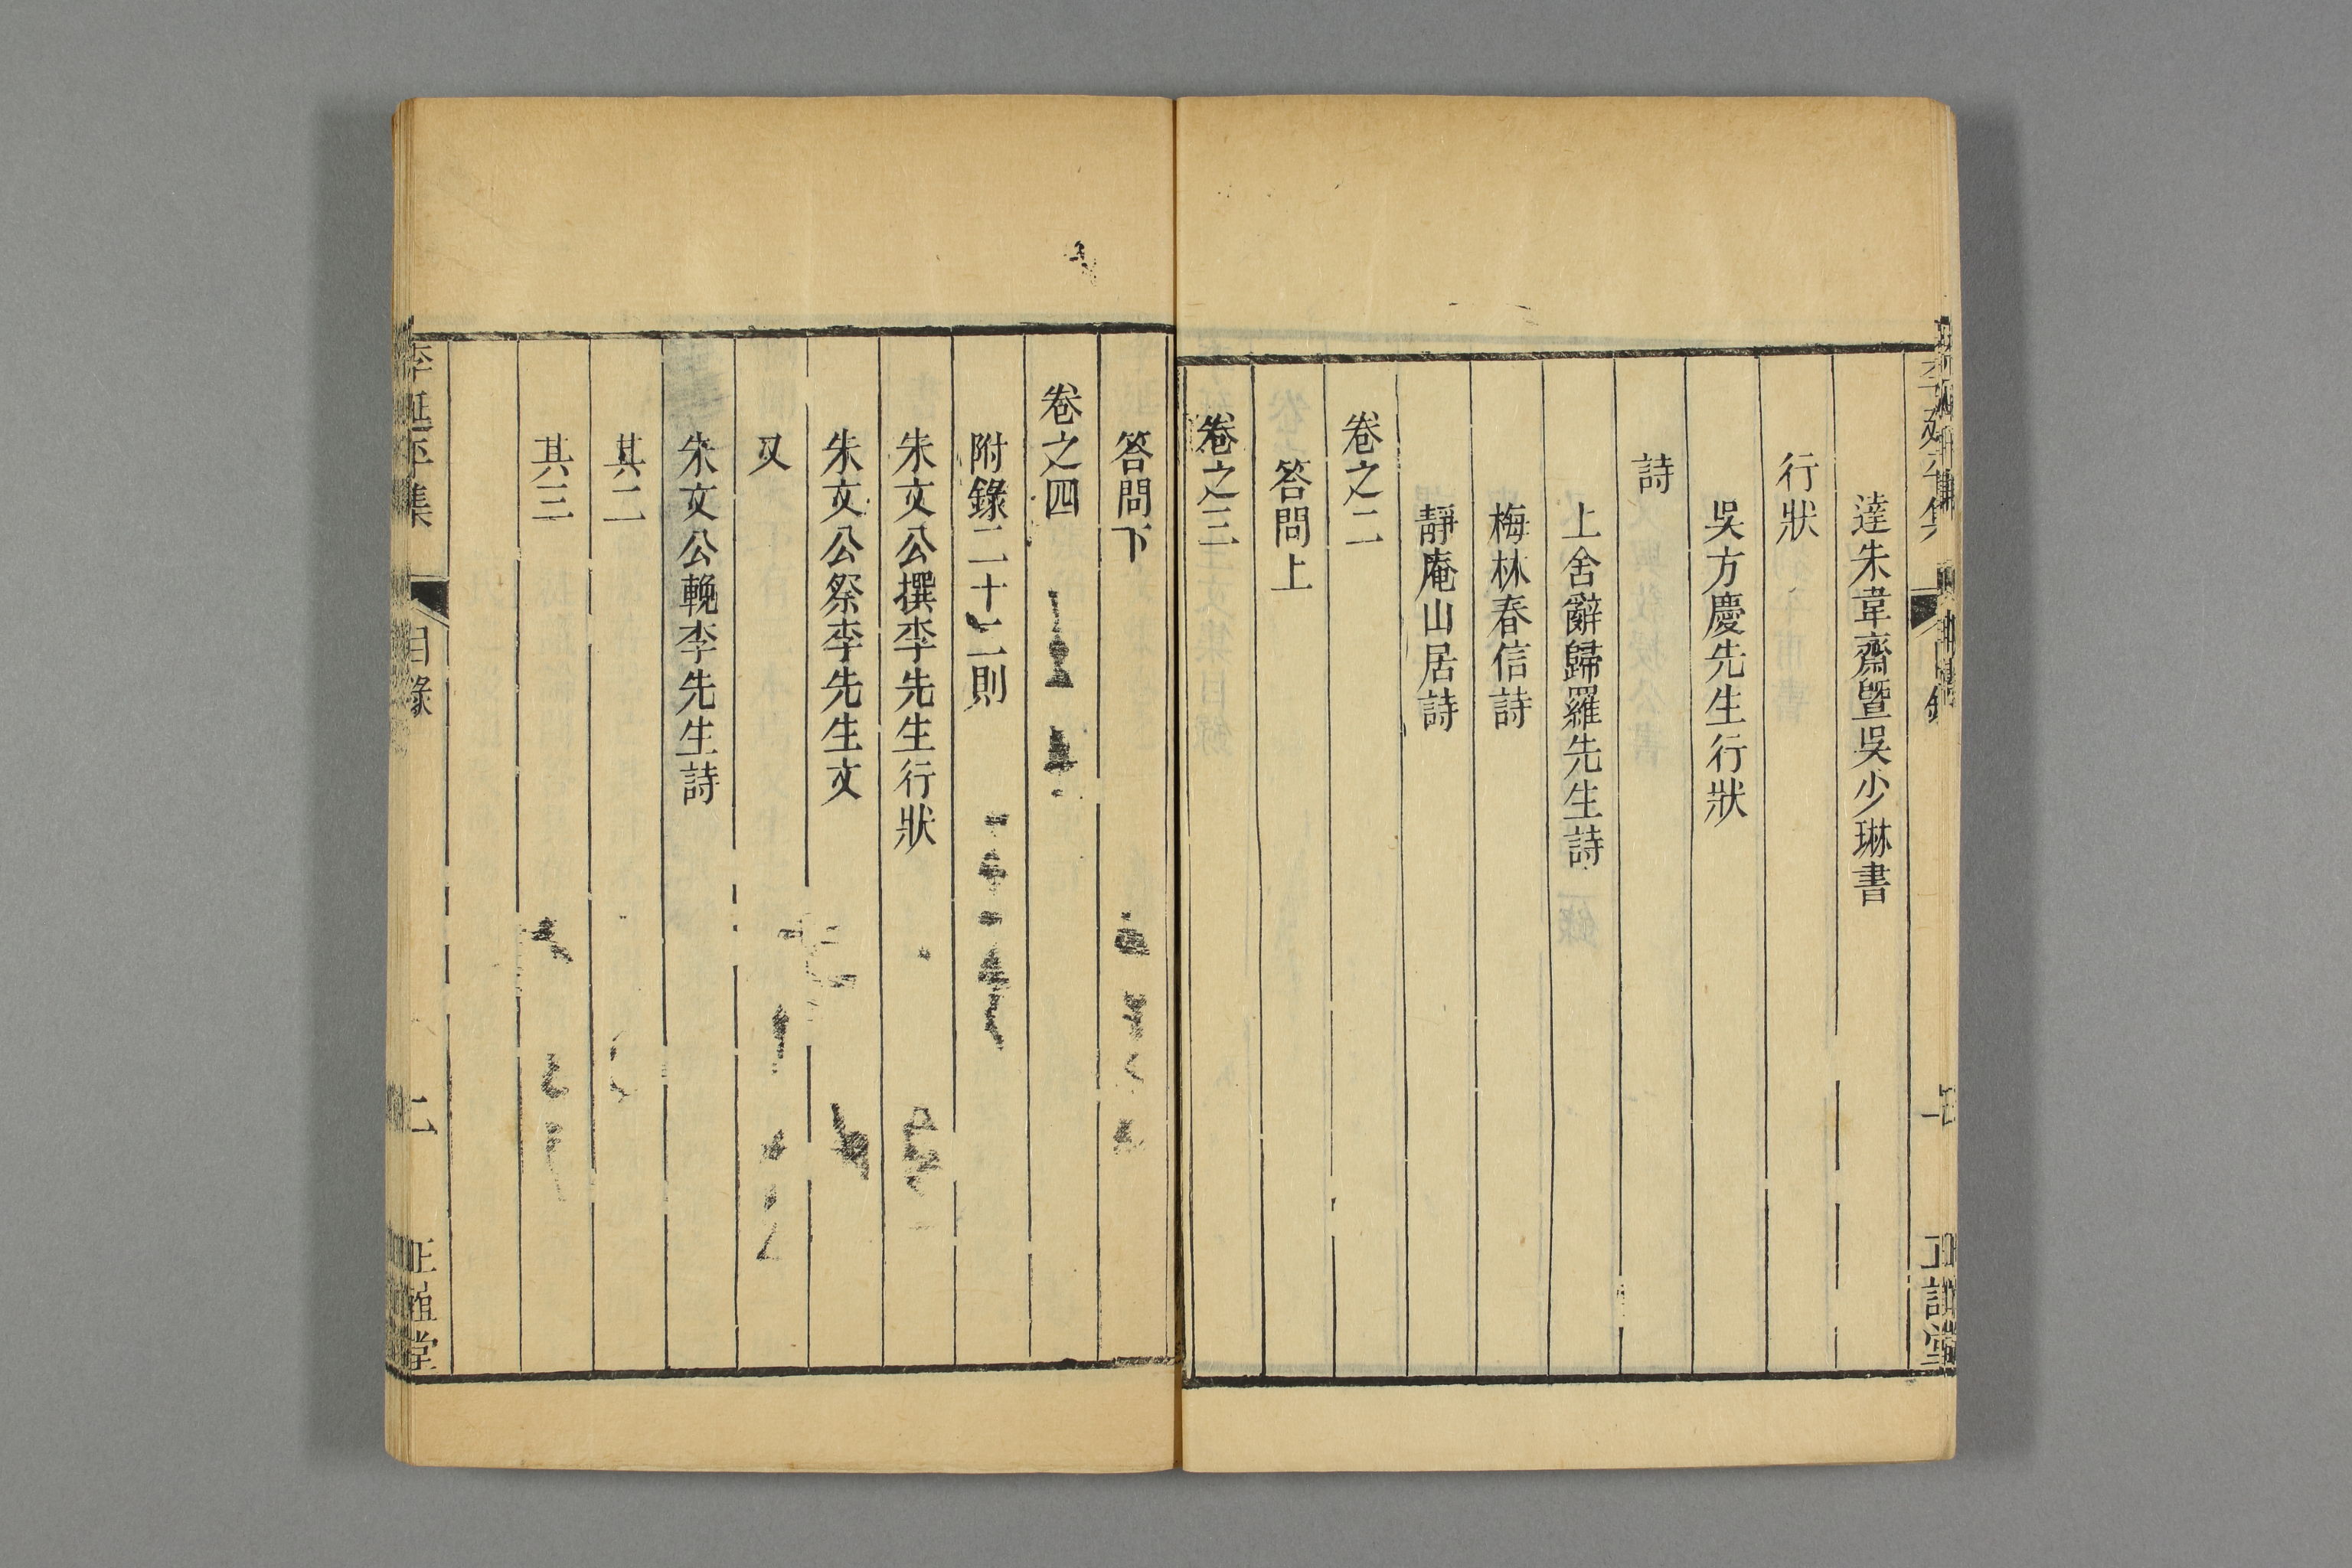 達朱韋齋曁吳少琳書
行狀
吳方慶先生行狀
詩
上舍辭歸羅先生詩
梅林春信詩
靜庵山居詩
卷之二
答問上
卷之三
答問下
卷之四
附錄二十二則
朱文公撰李先生行狀
朱文公祭李先生文
又
朱文公輓李先生詩
其二
其三
李延平集
目錄
二
正誼堂